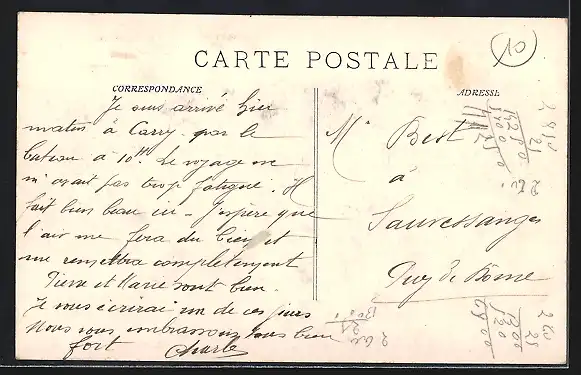 CARTE POSTALE
10
CORRESPONDANCE
ADRESSE
Je suis arrivé hier
matin à Carry par le
bateau à 10H. Le voyage ne
m'avait pas trop fatigué. Il
fait bien beau ici - J'espère que
l'air me fera du bien et
me remettra complètement
Pierre et Marie sont bien.
Je vous écrirai un de ces jours
Nous vous embrassons tous bien
fort Charles
Best
à
Sauvessanges
Puy de Dôme